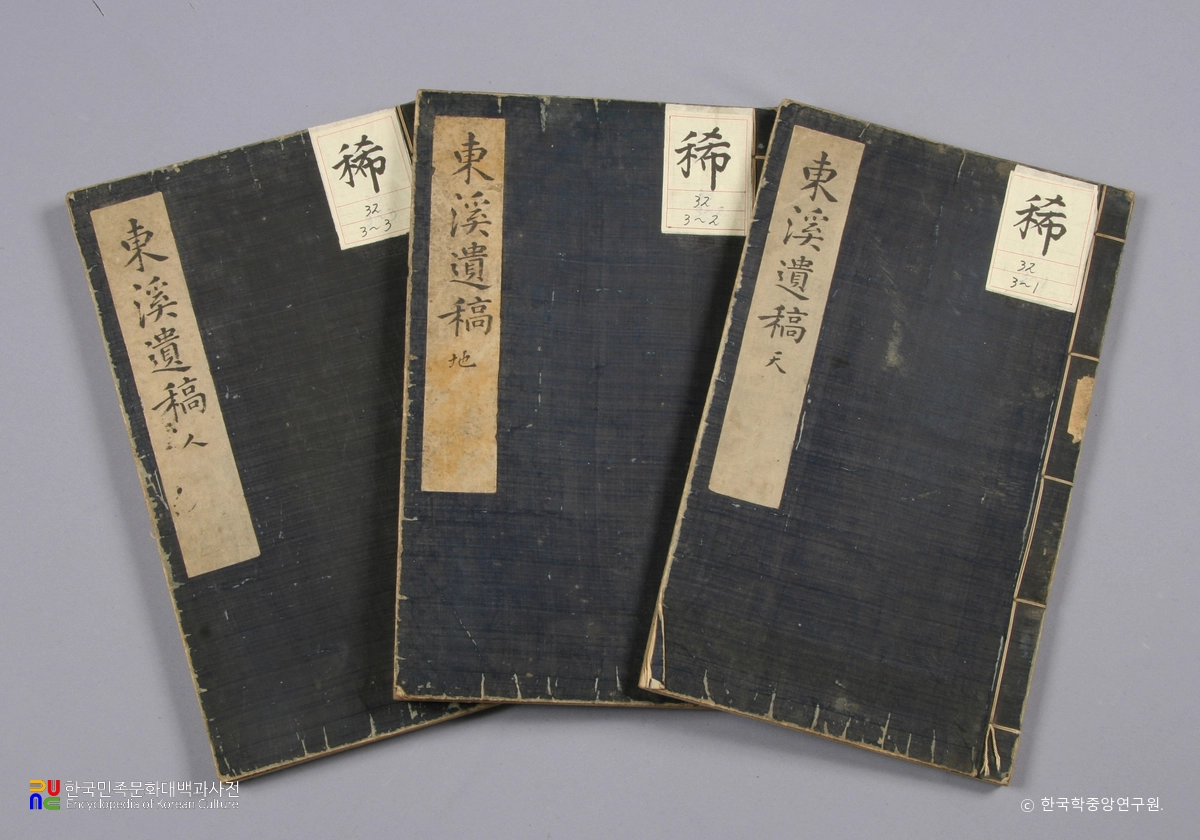 東溪遺稿 人
稀
32
3~3
東溪遺稿 地
稀
32
3~2
東溪遺稿 天
稀
32
3~1
한국민족문화대백과사전
Encyclopedia of Korean Culture
© 한국학중앙연구원.